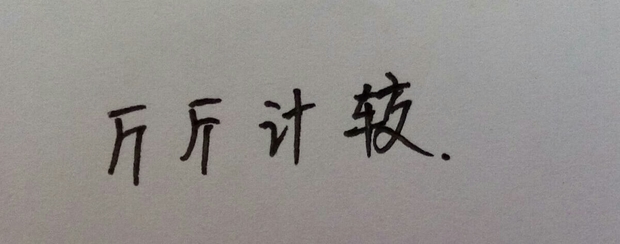 斤斤计较.